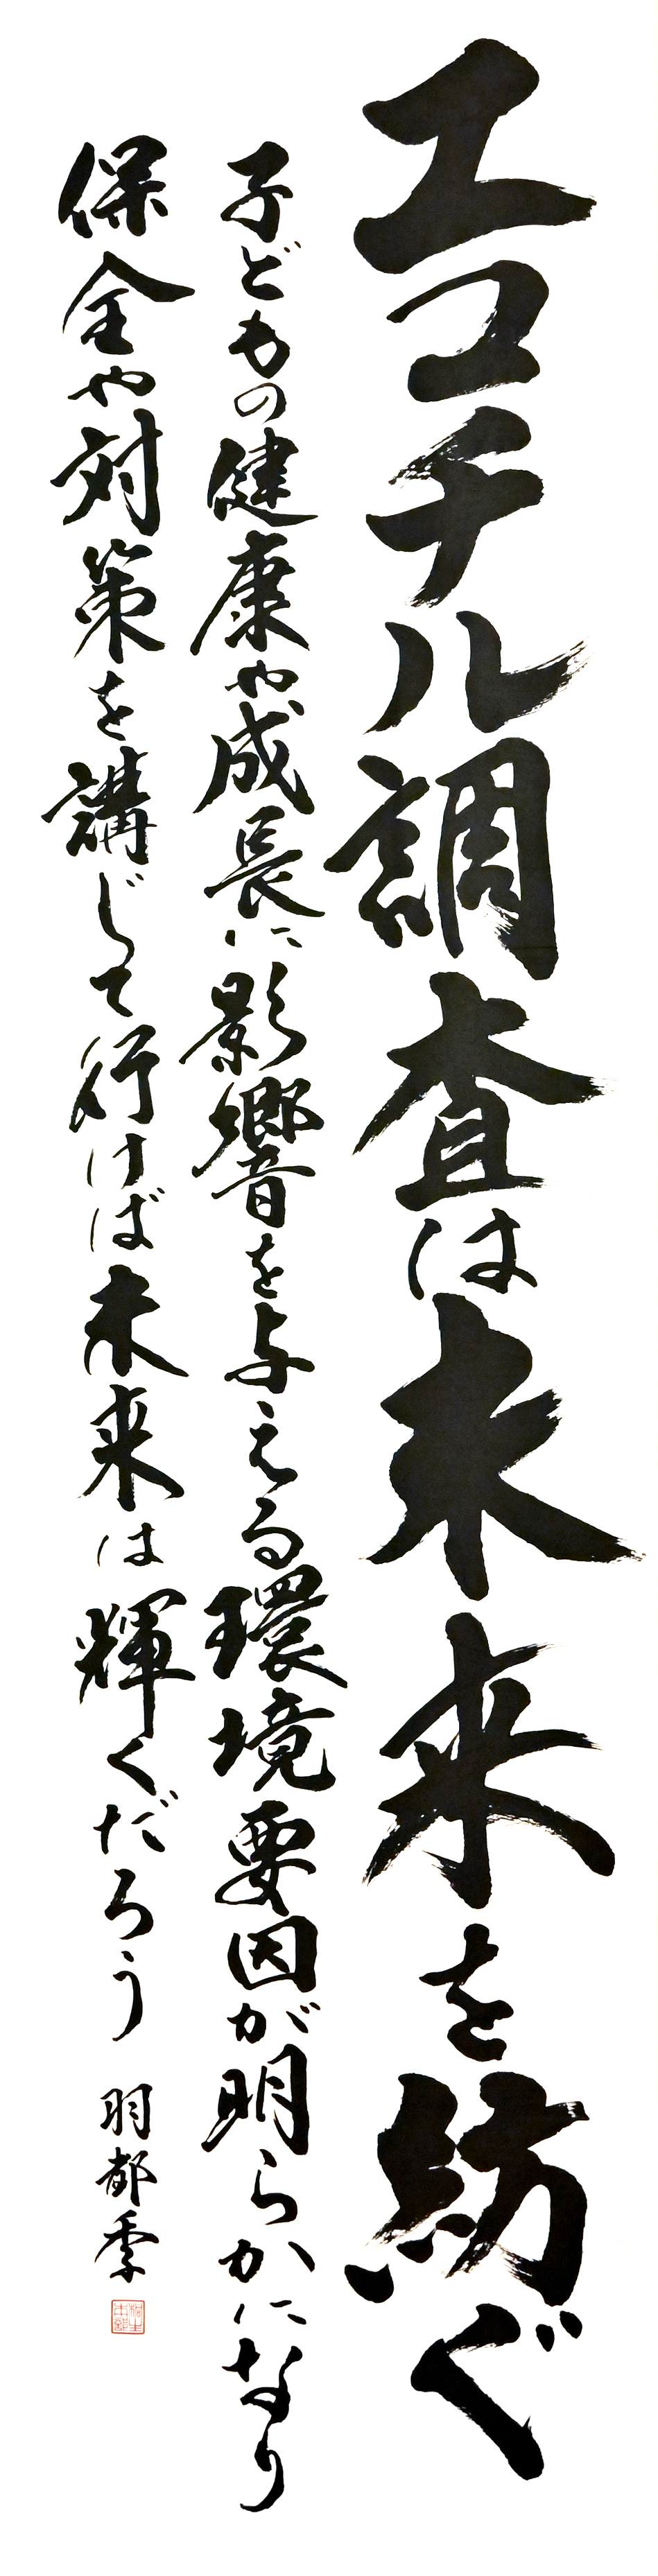 エコチル調査は未来を紡ぐ
子どもの健康や成長に影響を与える環境要因が明らかになり
保全や対策を講じて行けば未来は輝くだろう
羽都季